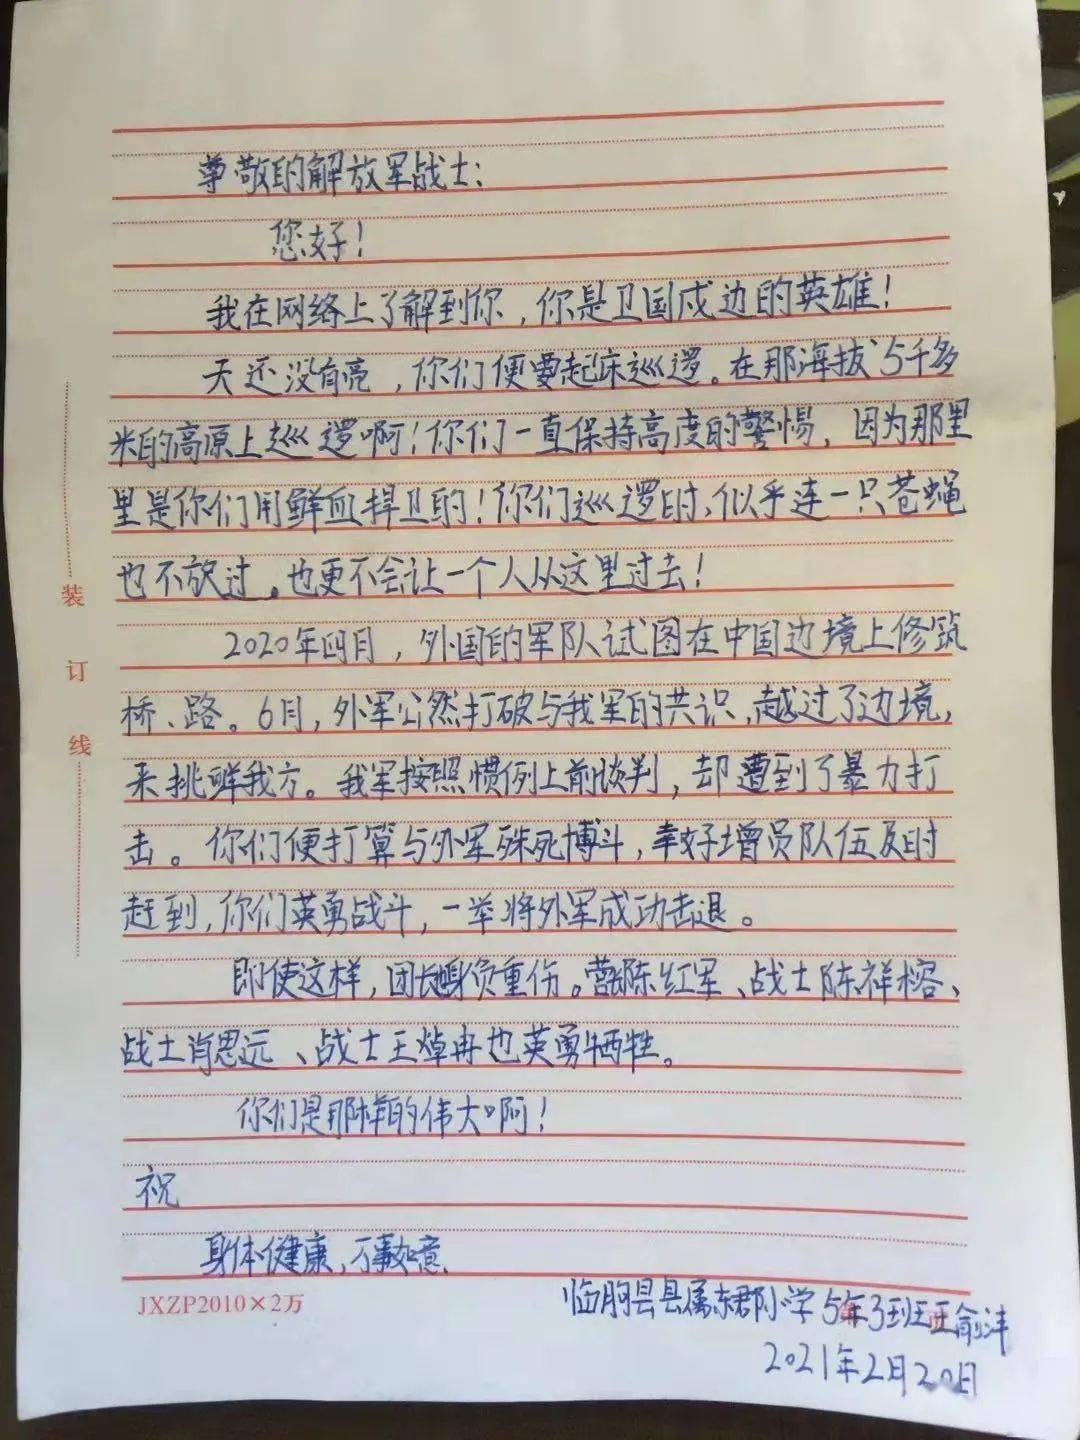 尊敬的解放军战士：
您好！
我在网络上了解到你，你是卫国戍边的英雄！
天还没有亮，你们便要起床巡逻。在那海拔5千多
米的高原上巡逻啊！你们一直保持高度的警惕，因为那里
里是你们用鲜血捍卫的！你们巡逻时、似乎连一只苍蝇
也不放过。也更不会让一个人从这里过去！
装
订
线
2020年四月，外国的军队试图在中国边境上修筑
桥、路。6月，外军公然打破与我军的共识，越过了边境，
来挑衅我方。我军按照惯例上前谈判，却遭到了暴力打
击。你们便打算与外军殊死博斗，幸好增员队伍及时
赶到，你们英勇战斗，一举将外军成功击退。
即使这样，团长身负重伤。营长陈红军、战士陈祥榕、
战士肖思远、战士王焯冉也英勇牺牲。
你们是那样的伟大啊！
祝
身体健康，万事如意
JXZP2010×2万
临朐县县属东郡小学5年3班王俞沣
2021年2月20日